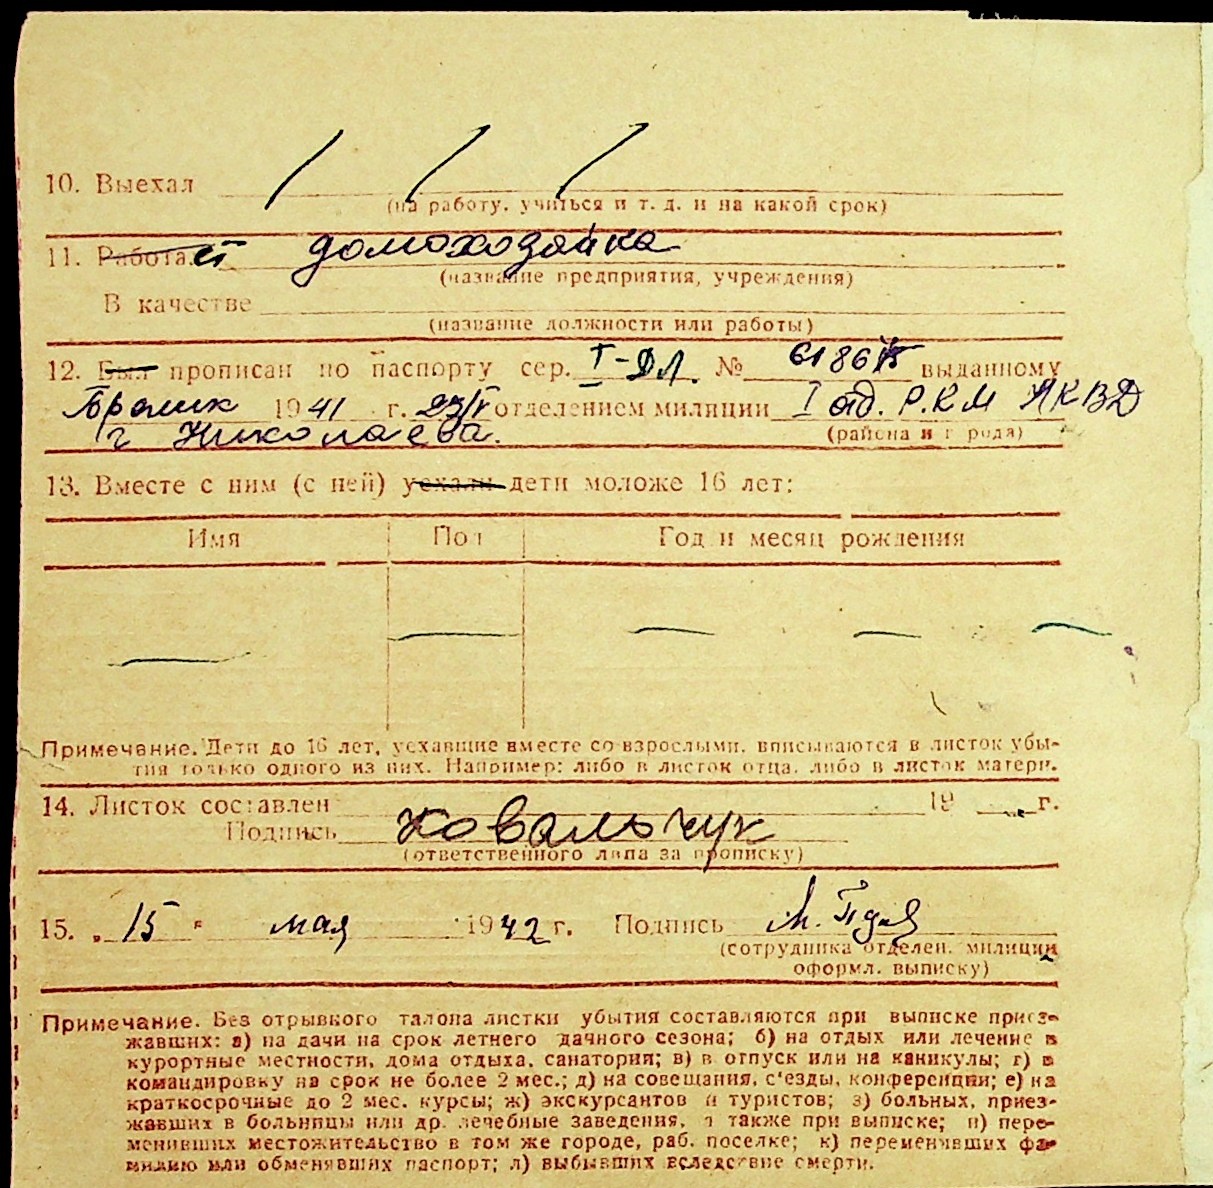 10. Выехал
(на работу, учиться и т. д. и на какой срок)
11. Работает домохозяйка
(название предприятия, учреждения)
В качестве
(название должности или работы)
12. Был прописан по паспорту сер. I-ДЛ. № выданному
1941 г. отделением милиции I отд. Р.К.М НКВД
г Николаева. (района и города)
13. Вместе с ним (с ней) уехали дети моложе 16 лет:
Имя Пол Год и месяц рождения
Примечание. Дети до 16 лет, уехавшие вместе со взрослыми, вписываются в листок убы-
тия только одного из них. Например: либо в листок отца, либо в листок матери.
14. Листок составлен 19 г.
Подпись Ковальчук
(ответственного лица за прописку)
15. „15" мая 1942 г. Подпись
(сотрудника отделен. милиции
оформл. выписку)
Примечание. Без отрывного талона листки убытия составляются при выписке приез-
жавших: а) на дачи на срок летнего дачного сезона; б) на отдых или лечение в
курортные местности, дома отдыха, санатории; в) в отпуск или на каникулы; г) в
командировку на срок не более 2 мес.; д) на совещания, с'езды, конференции; е) на
краткосрочные до 2 мес. курсы; ж) экскурсантов и туристов; з) больных, приез-
жавших в больницы или др. лечебные заведения, а также при выписке; и) пере-
менивших местожительство в том же городе, раб. поселке; к) переменивших фа-
милию или обменявших паспорт; л) выбывших вследствие смерти.